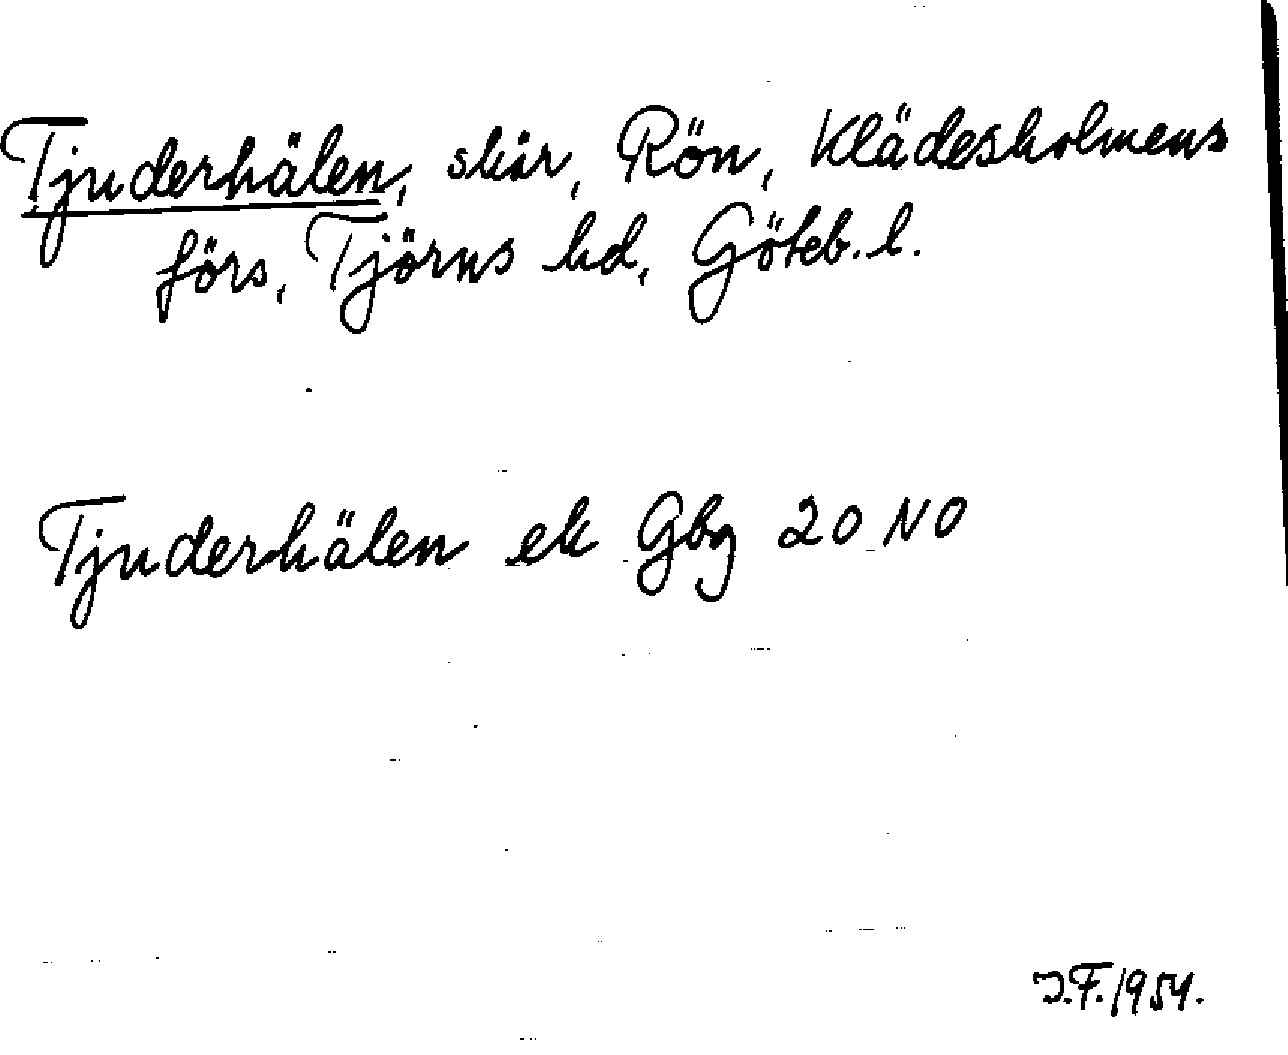 Tjuderhälen, skär, Rön, Klädesholmens
förs, Tjörns hd, Göteb. l.
Tjuderhälen ek Gbg 20 NO
J.F. 1954.